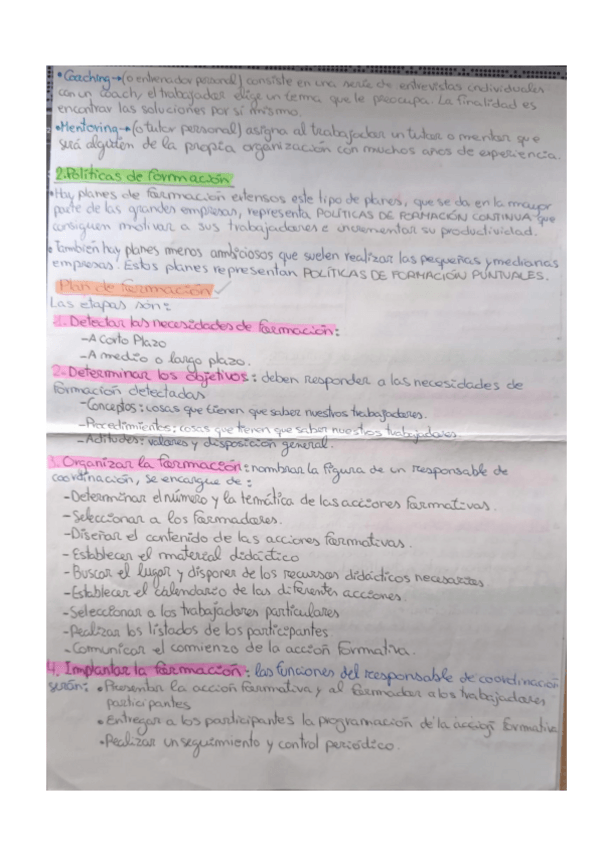 • Coaching → (o entrenador personal) consiste en una serie de entrevistas individuales
con un coach, el trabajador elige un tema que le preocupa. La finalidad es
encontrar las soluciones por sí mismo.
• Mentoring → (o tutor personal) asigna al trabajador un tutor o mentor que
será alguien de la propia organización con muchos años de experiencia.
2. Políticas de formación
• Hay planes de formación extensos este tipo de planes, que se da en la mayor
parte de las grandes empresas, representa POLÍTICAS DE FORMACIÓN CONTINUA que
consiguen motivar a sus trabajadores e incrementar su productividad.
• También hay planes menos ambiciosos que suelen realizar las pequeñas y medianas
empresas. Estos planes representan POLÍTICAS DE FORMACIÓN PUNTUALES.
Plan de formación
Las etapas són:
1. Detectar las necesidades de formación:
- A Corto Plazo
- A medio o largo plazo.
2. Determinar los objetivos: deben responder a las necesidades de
formación detectadas
- Conceptos: cosas que tienen que saber nuestros trabajadores.
- Procedimientos: cosas que tienen que saber nuestros trabajadores
- Actitudes: valores y disposición general.
3. Organizar la formación: nombrar la figura de un responsable de
coordinación, se encargue de:
- Determinar el número y la temática de las acciones formativas.
- Seleccionar a los formadores.
- Diseñar el contenido de las acciones formativas.
- Establecer el material didáctico
- Buscar el lugar y disponer de los recursos didácticos necesarios
- Establecer el calendario de las diferentes acciones.
- Seleccionar a los trabajadores particulares
- Realizar los listados de los participantes.
- Comunicar el comienzo de la acción formativa.
4. Implantar la formación: las funciones del responsable de coordinación
serán: • Presentar la acción formativa y al formador a los trabajadores
participantes
• Entregar a los participantes la programación de la acción formativa
• Realizar un seguimiento y control periódico.